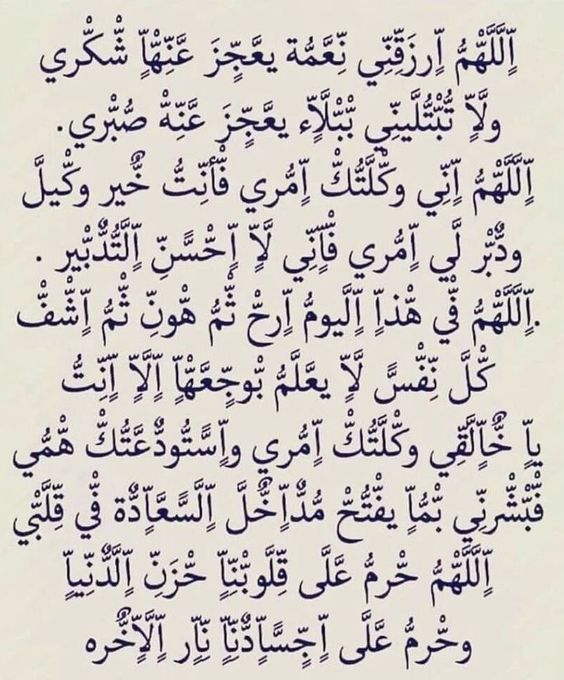 اللهم ارزقني نعمة يعجز عنها شكري
ولا تبتليني ببلاء يعجز عنه صبري.
اللهم اني وكلتك امري فأنت خير وكيل
ودبر لي امري فإني لا احسن التدبير .
.اللهم في هذا اليوم ارح ثم هون ثم اشف
كل نفس لا يعلم بوجعها الا انت
يا خالقي وكلتك امري واستودعتك همي
فبشرني بما يفتح مداخل السعادة في قلبي
اللهم حرم على قلوبنا حزن الدنيا
وحرم على اجسادنا نار الاخره